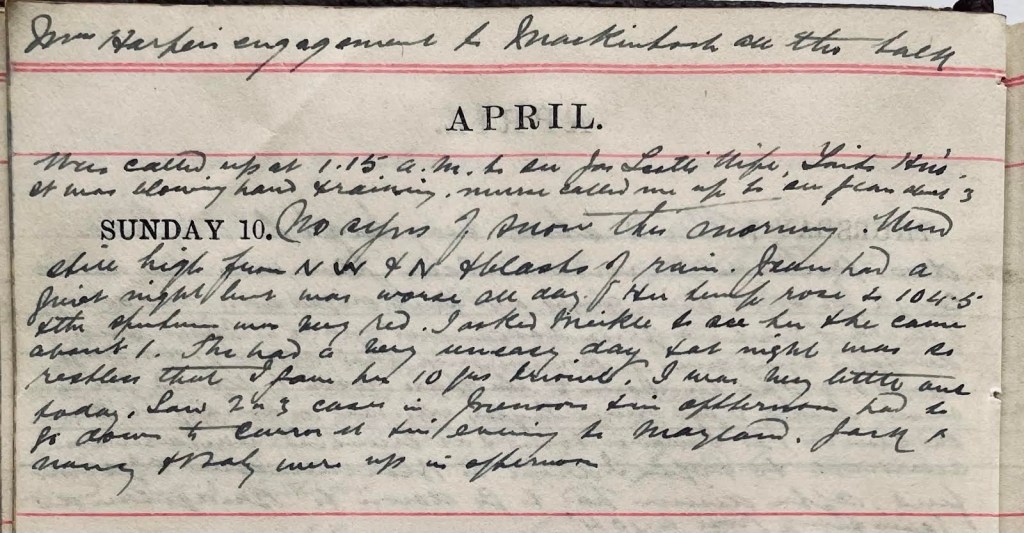 Harper's engagement to Mackintosh all the talk
APRIL.
Was called up at 1.15 a.m. to see Jas Wife,
it was blowing hard & raining. nurse called me up to see Jean about 3
SUNDAY 10. No signs of snow this morning. Wind
still high from NW & N & blasts of rain. Jean had a
quiet night but was worse all day. Her temp rose to 104.5
& the sputum was very red. I asked Meikle to see her & he came
about 1. She had a very uneasy day & at night was so
restless that I gave her 10 grs. I was very little out
today. Saw 2 or 3 cases in forenoon & in afternoon had to
go down to & in evening to Maryland. Jack &
Nancy & Baby were up in afternoon